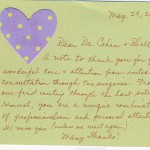 May 24, 2
Dear Dr. Cohen &
A note to thank you for y
wonderful care & attention from initia
consultation through two surgeries. From
our first meeting through the last sutu
removal, you are a unique combinati
of professionalism and personal attenti
I'll miss you (unless we meet again!)
Many Thanks!